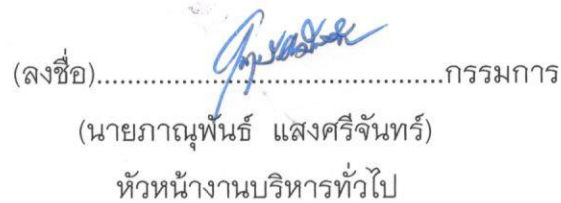 (ลงชื่อ)..............................................กรรมการ
(นายภาณุพันธ์ แสงศรีจันทร์)
หัวหน้างานบริหารทั่วไป